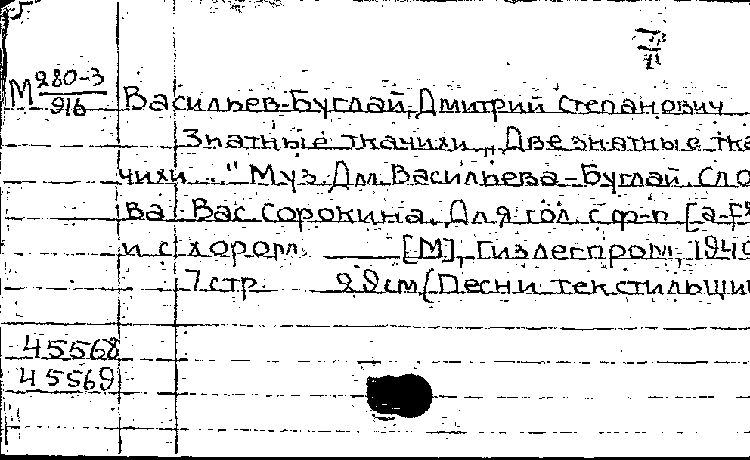 М 280-3
916
Васильев-Буглай, Дмитрий Степанович
Знатные ткачихи „Две знатные тка
чихи..." Муз. Дм. Васильева-Буглай. Сло
ва Вас Сорокина. Для гол. с ф-п
и с хором. [М], Гизлегпром, 1940
7 стр. 29 см (Песни текстильщи
45568
45569